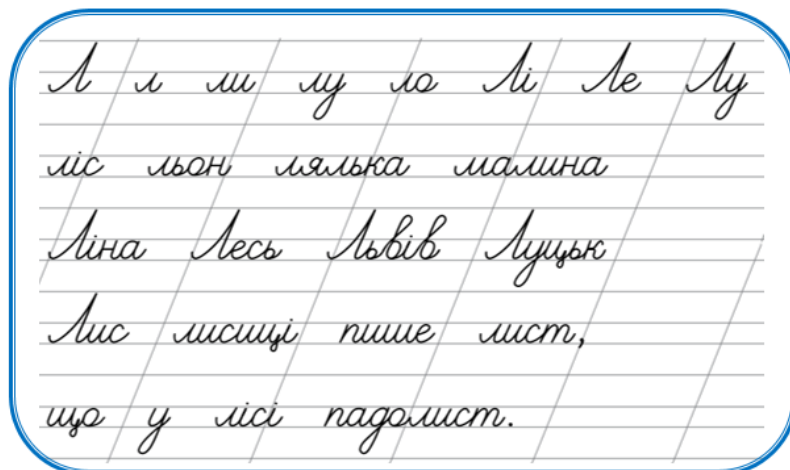 Л л ли лу ло Лі Ле Лу
ліс льон лялька малина
Ліна Лесь Львів Луцьк
Лис лисиці пише лист,
що у лісі падолист.